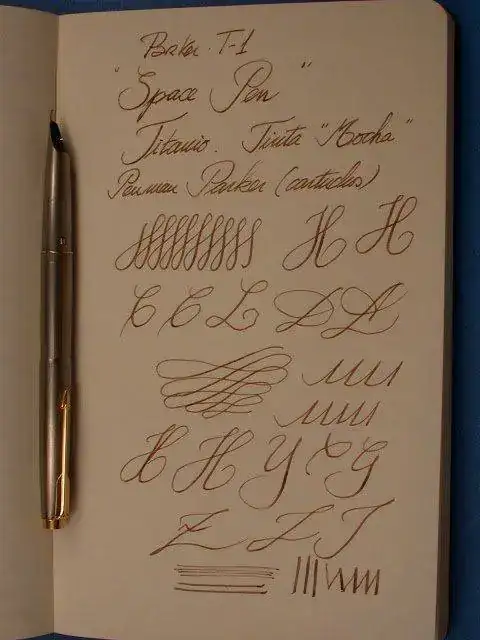 Parker T-1
"Space Pen"
Titanio. Tinta "Mocha"
Penman Parker (cartuchos)
H H
C C L D A
H H Y X G
Z L T